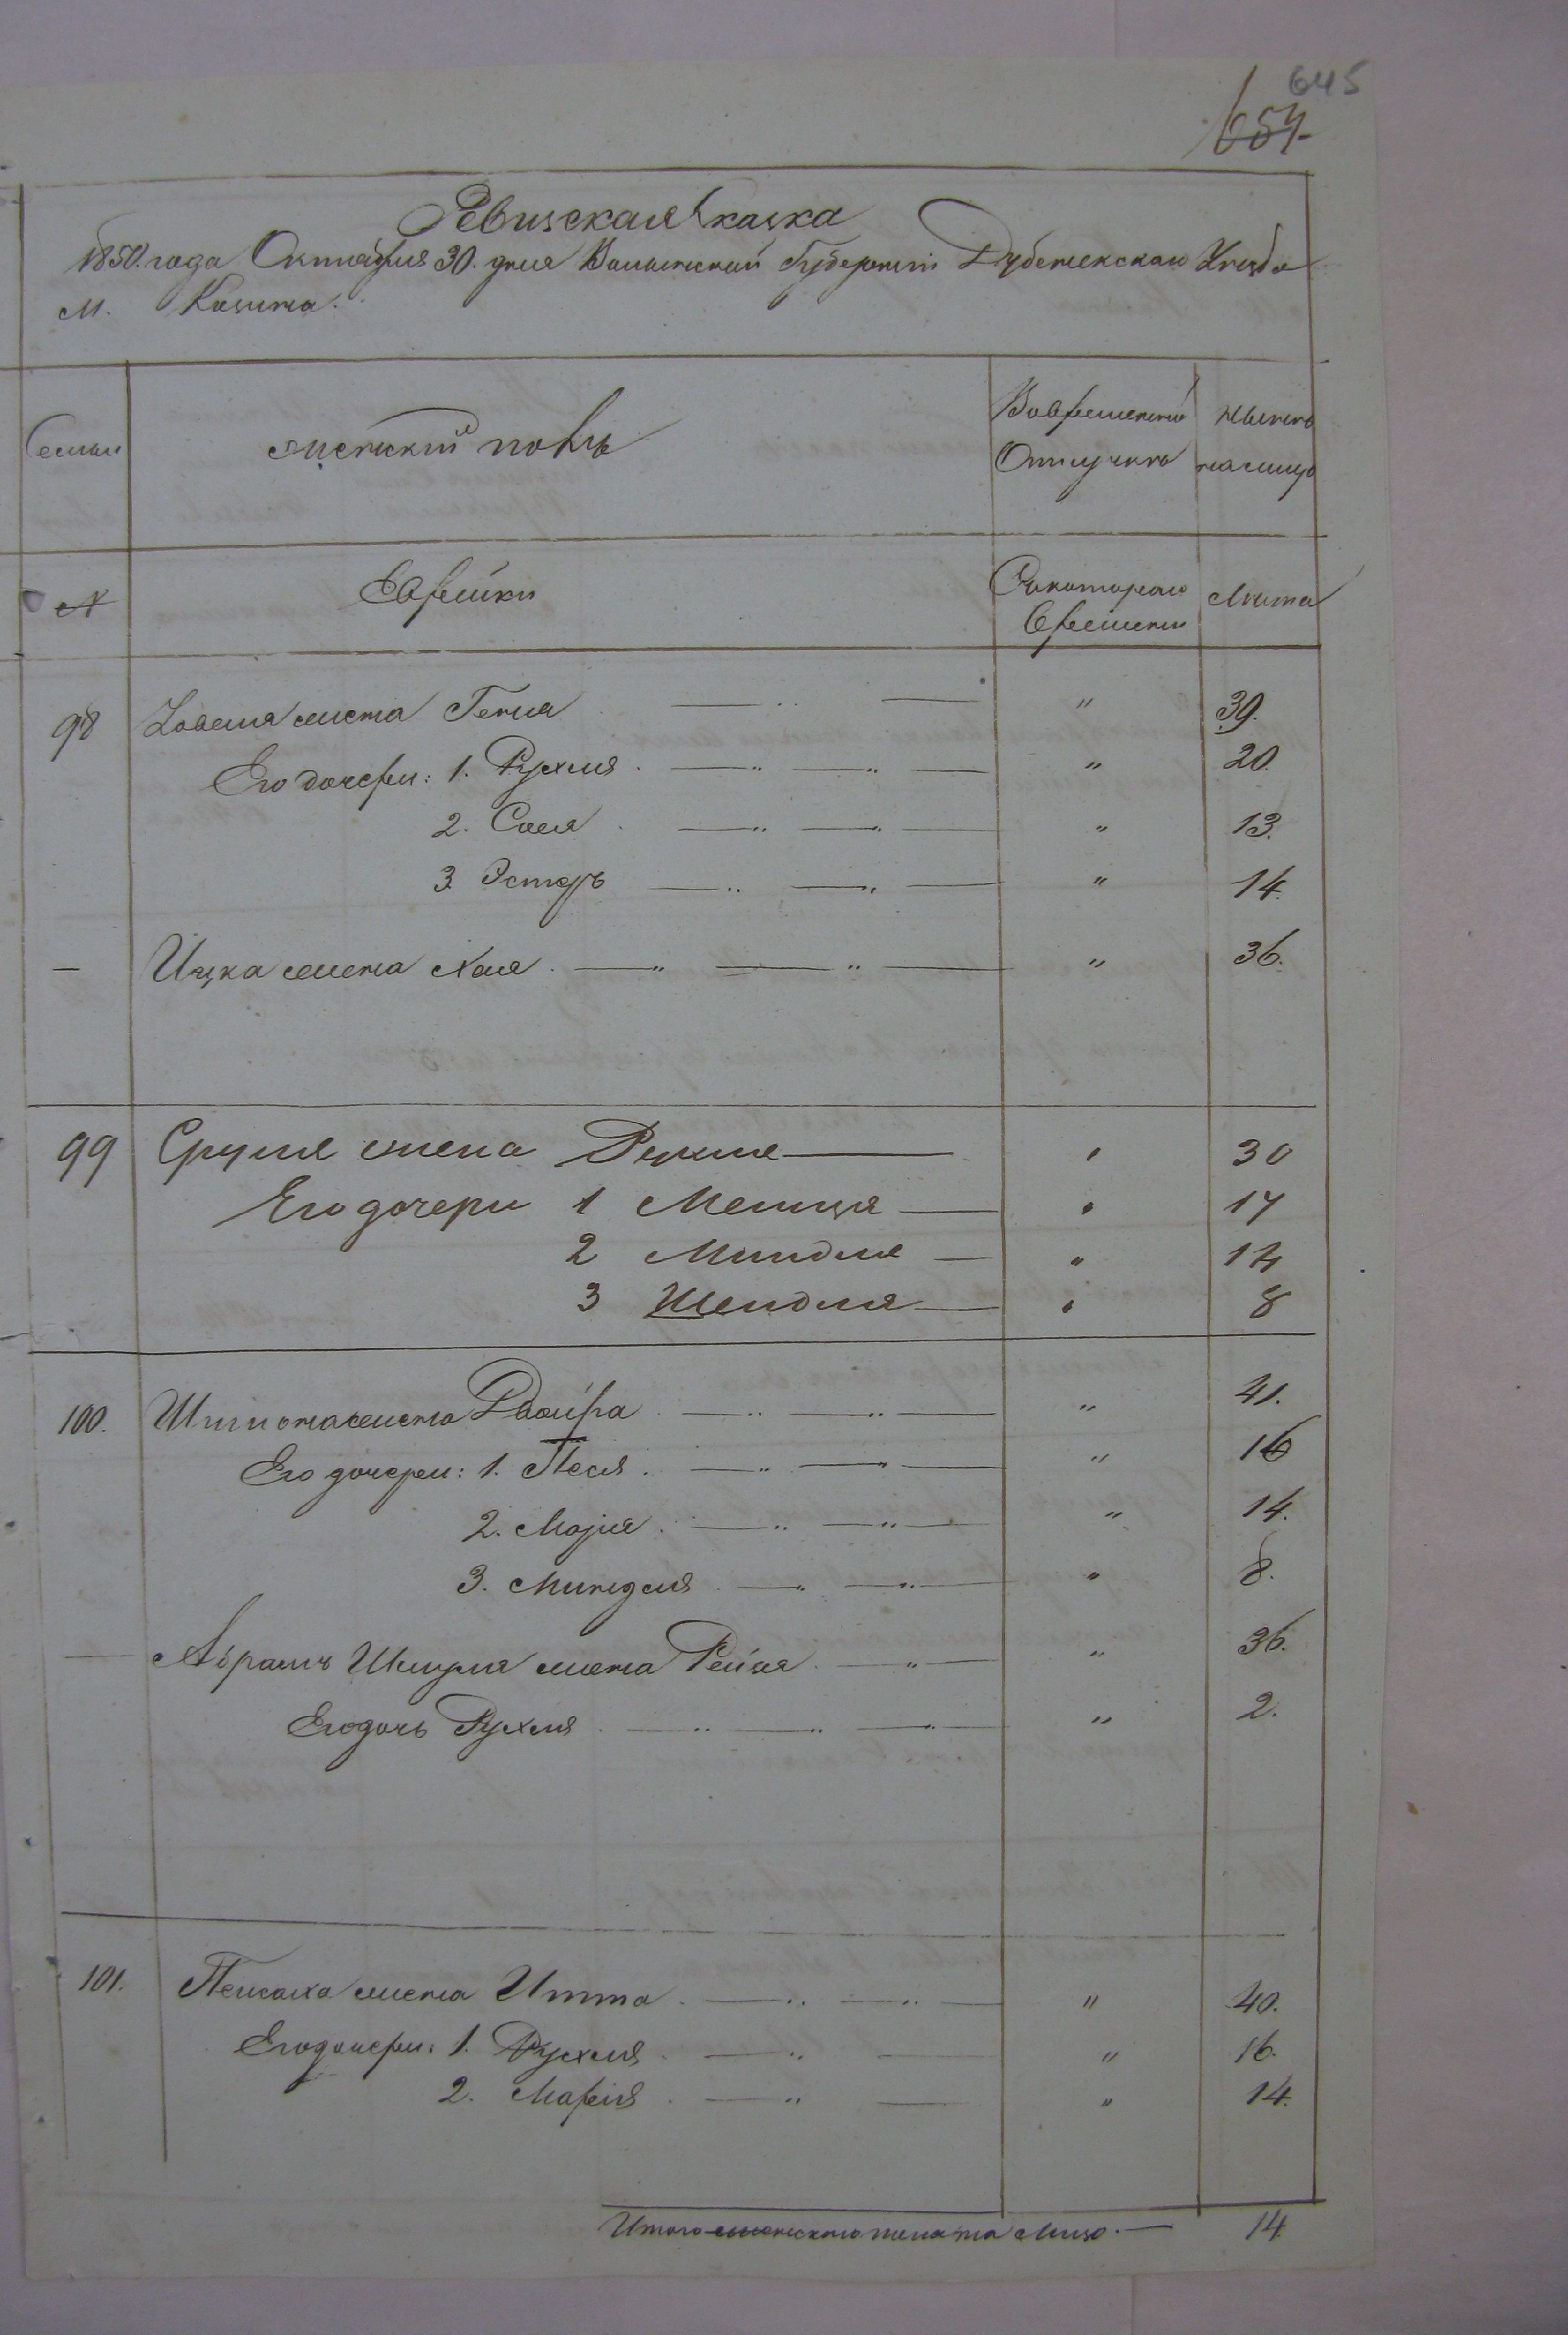 645
654
Ревизская Сказка
1850. года Октября 30. дня Волынской Губернии Дубенскаго Уезда
м. Козина.
Семьи
женский полъ
Вовременной Отлучке
ныне на лицо
№
Еврейки
Скотораго времени
Лета
98 жена Геня " 39.
Его дочери: 1. Рухля " 20.
2. Сося " 13.
3 Эстеръ " 14.
— Ицка жена Хая " 36.
99 Сруля жена " 30
Его дочери 1 " 17
2 Миндля " 14
3 Шендля " 8
100. жена Двойра " 41.
Его дочери: 1. Песя " 16
2. Марія " 14.
3. Миндля " 8.
— Абрамъ Шмуля жена Рейзя " 36.
Его дочь Рухля " 2.
101. Пейсаха жена Итта " 40.
Его дочери: 1. Рухля " 16.
2. Марія " 14.
Итого женскаго пола на лицо — 14